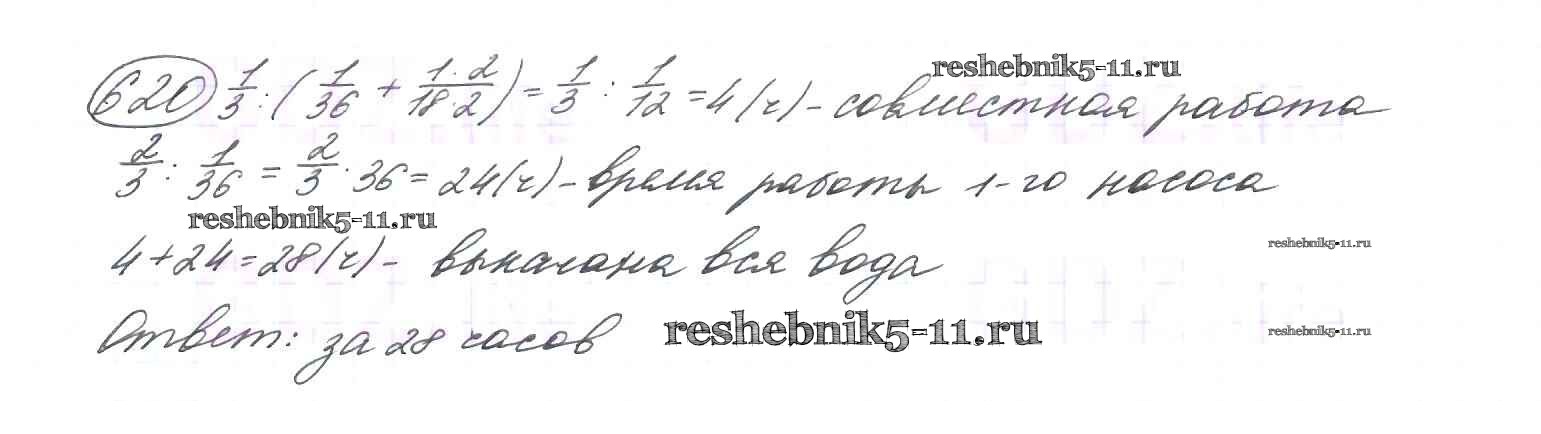 620 1/3 : (1/36 + 1·2/18·2) = 1/3 : 1/12 = 4 (ч) - совместная работа
reshebnik5-11.ru
2/3 : 1/36 = 2/3 · 36 = 24 (ч) - время работы 1-го насоса
reshebnik5-11.ru
4 + 24 = 28 (ч) - выкачана вся вода
reshebnik5-11.ru
Ответ: за 28 часов
reshebnik5-11.ru
reshebnik5-11.ru